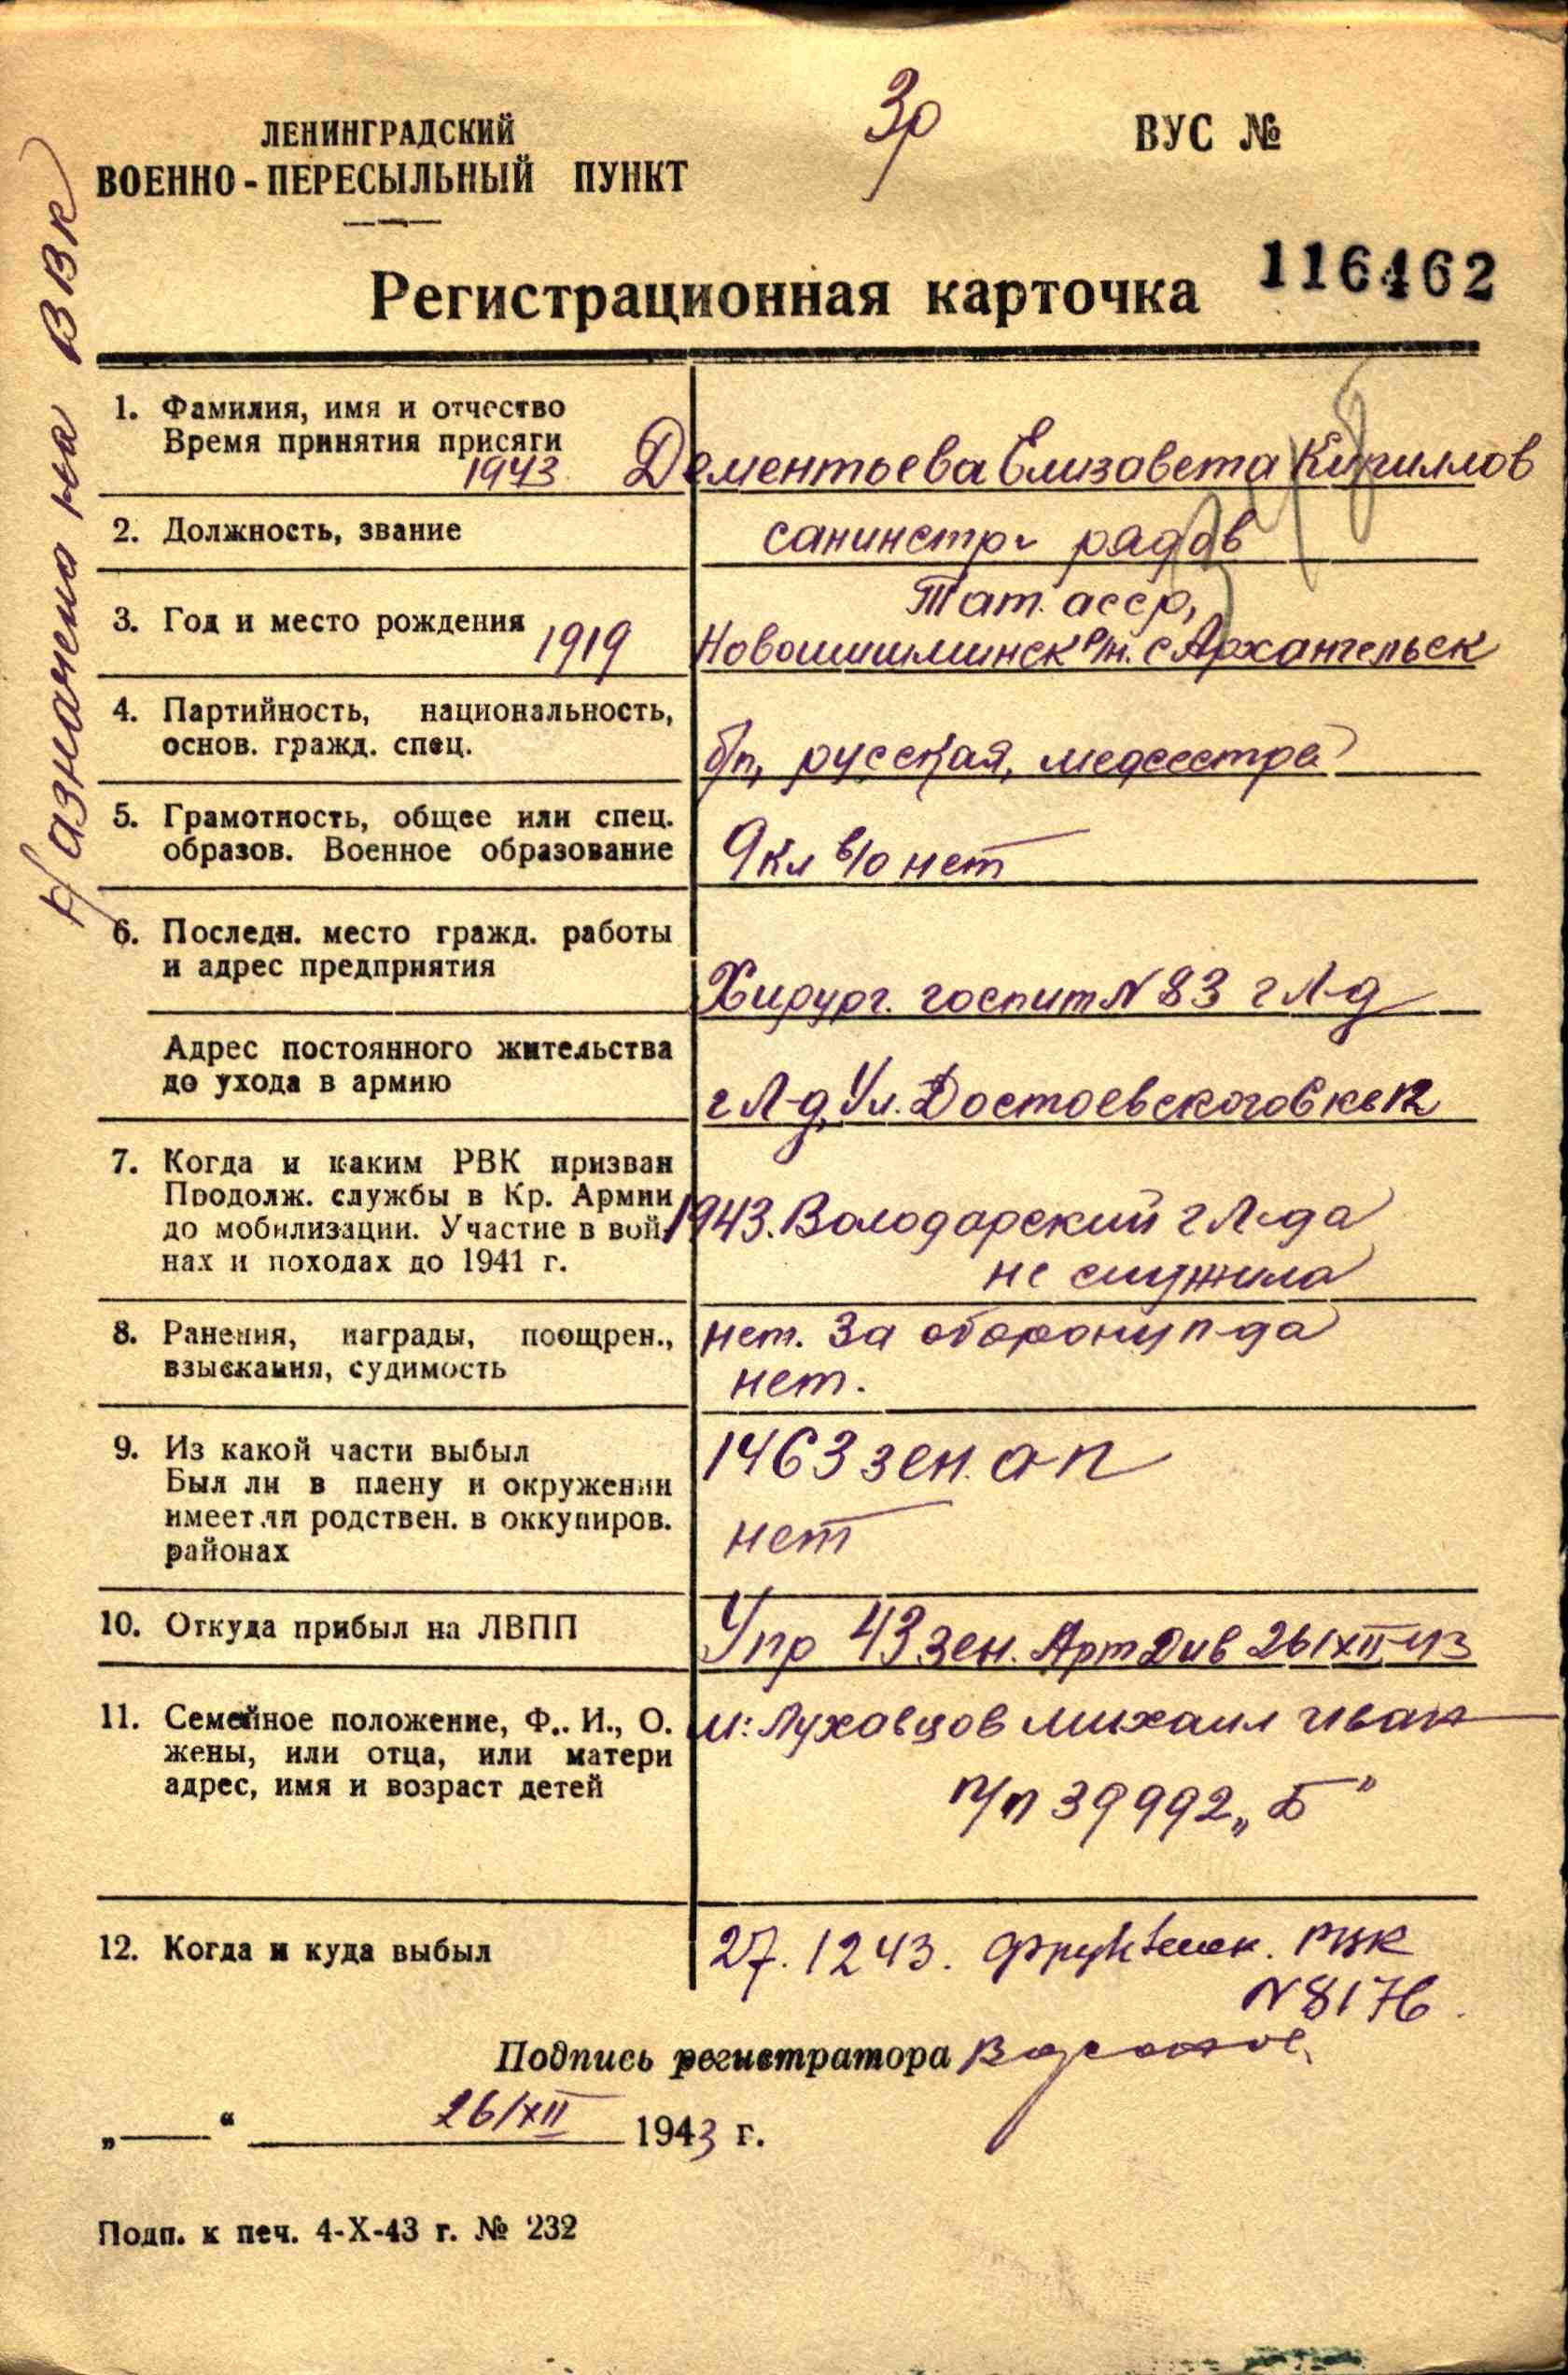 ЛЕНИНГРАДСКИЙ
ВОЕННО-ПЕРЕСЫЛЬНЫЙ ПУНКТ
ВУС №
Регистрационная карточка 116462
азначена на ВВК
1. Фамилия, имя и отчество
Время принятия присяги
1943 Дементьева Елизавета Кириллов
2. Должность, звание
санинстр. рядов
3. Год и место рождения 1919
Тат. асср,
Новошишминск р/н. с Архангельск
4. Партийность, национальность,
основ. гражд. спец.
б/п, русская, медсестра
5. Грамотность, общее или спец.
образов. Военное образование
9 кл в/о нет
6. Последн. место гражд. работы
и адрес предприятия
Хирург. госпит N 83 г Л-д
Адрес постоянного жительства
до ухода в армию
г Л-д, Ул. Достоевского 6 кв 12
7. Когда и каким РВК призван
Продолж. службы в Кр. Армии
до мобилизации. Участие в вой-
нах и походах до 1941 г.
1943. Володарский г Л-да
не служила
8. Ранения, награды, поощрен.,
взыскания, судимость
нет. За оборону Л-да
нет.
9. Из какой части выбыл
Был ли в плену и окружении
имеет ли родствен. в оккупиров.
районах
1463 зен. а-п
нет
10. Откуда прибыл на ЛВПП
Упр 43 зен. Арт Див 26/XII-43
11. Семейное положение, Ф.. И., О.
жены, или отца, или матери
адрес, имя и возраст детей
м: Луховцов Михаил Иван
п/п 39992 „Б"
12. Когда и куда выбыл
27.12 43. Фрунзенск. РВК
N 8176.
Подпись регистратора
„——" 26/XII 1943 г.
Подп. к печ. 4-X-43 г. № 232